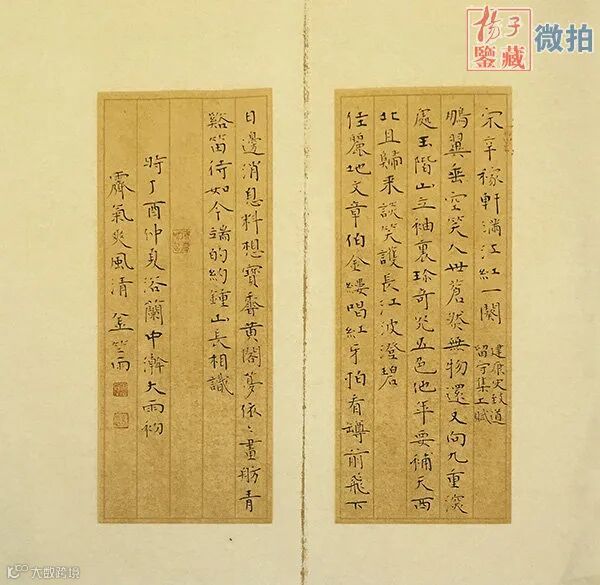 楊子
鑒藏
微拍
宋辛稼軒滿江紅一闋
建康史致道
留守集上賦
鵬翼垂空笑人世蒼然無物還又向九重深
處玉階山立袖裏珍奇光五色他年要補天西
北且歸來談笑護長江波澄碧
佳麗地文章伯金縷唱紅牙拍看罇前飛下
日邊消息料想寶齋黃閣夢依〻畫舫青
谿笛待如今端的約鍾山長相識
時丁酉仲夏浴蘭中澣大雨初
霽氣爽風清
大数跨境